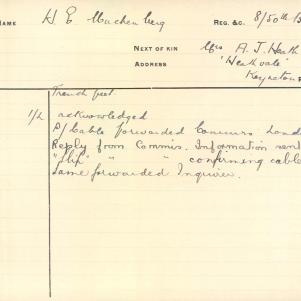 NAME H E Muchenberg REG. &C. 8/50th B
NEXT OF KIN Mrs A. J. Heath
ADDRESS "Heathvale"
Keyneton
Trench feet.
1/2 acknowledged
P/Cable forwarded Commrs Lond
Reply from Commis. Information sent
"Slip" " " confirming cable
Same forwarded Inquirer.